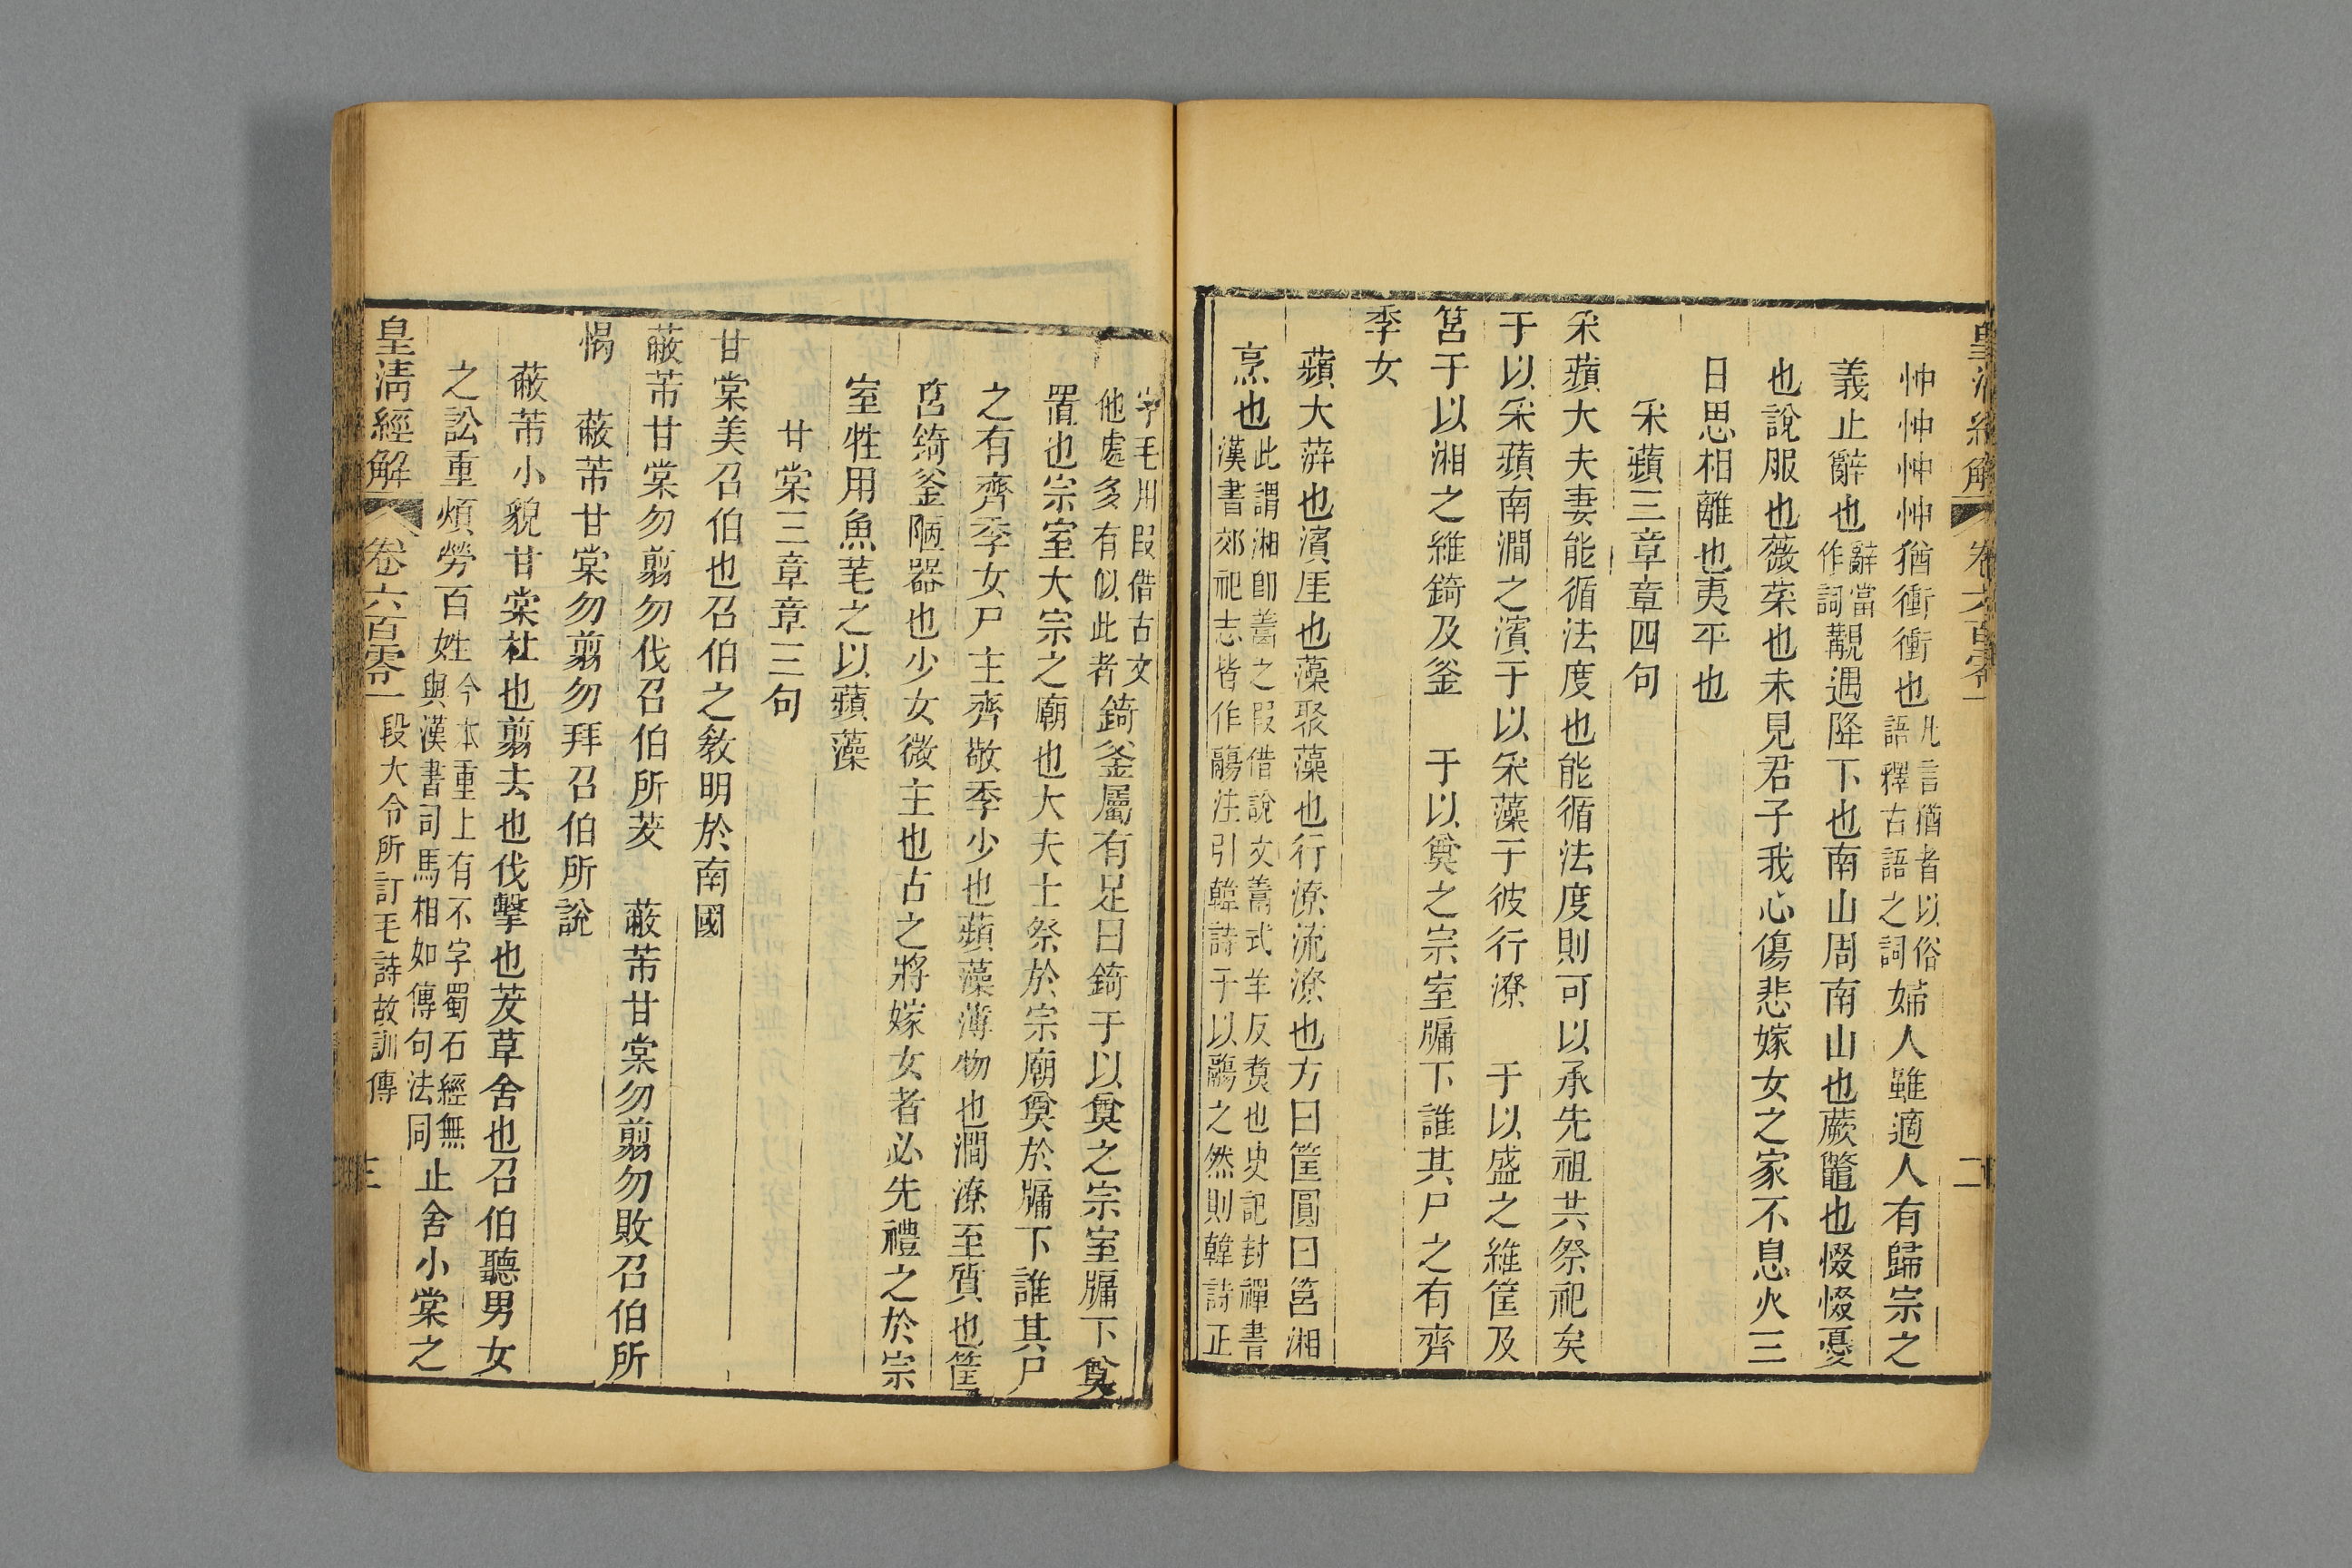 皇清經解 卷六百零一 二
忡忡忡忡猶衝衝也凡言猶者以俗語釋古語之詞婦人雖適人有歸宗之
義止辭也辭當作詞覯遇降下也南山周南山也蕨鼈也惙惙憂
也說服也薇菜也未見君子我心傷悲嫁女之家不息火三
日思相離也夷平也
采蘋三章章四句
采蘋大夫妻能循法度也能循法度則可以承先祖共祭祀矣
于以采蘋南澗之濱于以采藻于彼行潦 于以盛之維筐及
筥于以湘之維錡及釜 于以奠之宗室牖下誰其尸之有齊
季女
蘋大蓱也濱厓也藻聚藻也行潦流潦也方曰筐圓曰筥湘
烹也此謂湘卽鬺之叚借說文鬺式羊反煑也史記封禪書漢書郊祀志皆作鬺注引韓詩于以鬺之然則韓詩正
字毛用叚借古文他處多有似此者錡釜屬有足曰錡于以奠之宗室牖下奠
置也宗室大宗之廟也大夫士祭於宗廟奠於牖下誰其尸
之有齊季女尸主齊敬季少也蘋藻薄物也澗潦至質也筐
筥錡釜陋器也少女微主也古之將嫁女者必先禮之於宗
室牲用魚芼之以蘋藻
甘棠三章章三句
甘棠美召伯也召伯之敎明於南國
蔽芾甘棠勿翦勿伐召伯所茇 蔽芾甘棠勿翦勿敗召伯所
愒 蔽芾甘棠勿翦勿拜召伯所說
蔽芾小貌甘棠杜也翦去也伐擊也茇草舍也召伯聽男女
之訟重煩勞百姓今本重上有不字蜀石經無與漢書司馬相如傳句法同止舍小棠之
皇清經解 卷六百零一 段大令所訂毛詩故訓傳 三